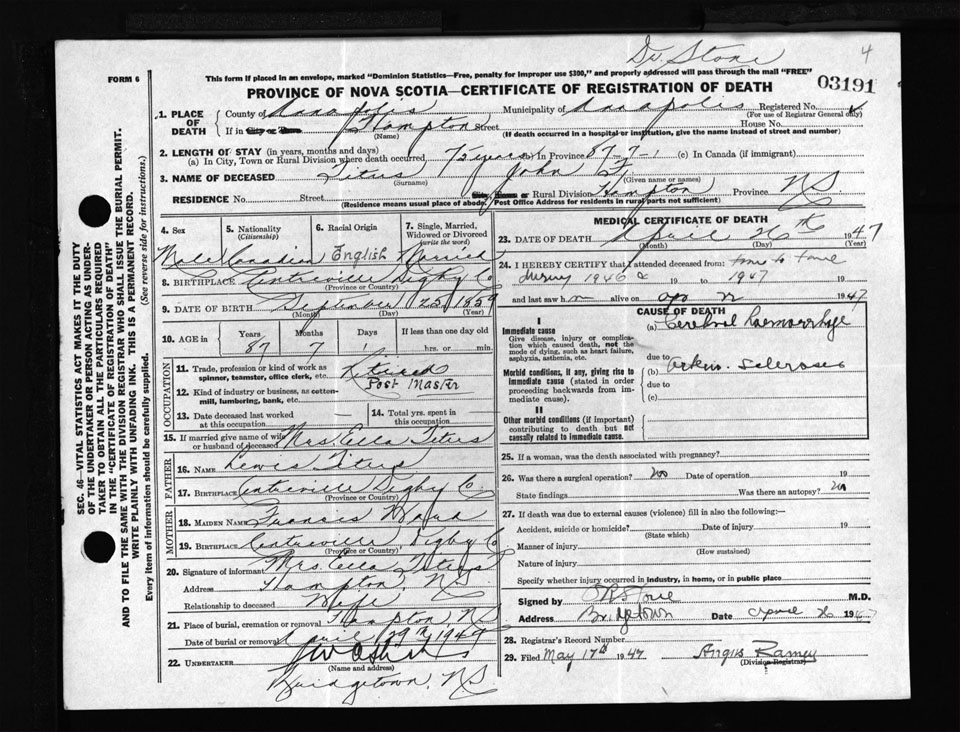 Dr. Stone
4
FORM 6
This form if placed in an envelope, marked "Dominion Statistics—Free, penalty for improper use $300," and properly addressed will pass through the mail "FREE"
03191
PROVINCE OF NOVA SCOTIA—CERTIFICATE OF REGISTRATION OF DEATH
1. PLACE OF DEATH
County of Annapolis Municipality of Annapolis Registered No.
(For use of Registrar General only)
If in City or Town Hampton Street House No.
(Name) (If death occurred in a hospital or institution, give the name instead of street and number)
2. LENGTH OF STAY (in years, months and days)
(a) In City, Town or Rural Division where death occurred 75 years (b) In Province 87-7-1 (c) In Canada (if immigrant)
3. NAME OF DECEASED Titus John F.
(Surname) (Given name or names)
RESIDENCE No. Street City, Town or Rural Division Hampton Province N.S.
(Residence means usual place of abode. Post Office Address for residents in rural parts not sufficient)
4. Sex
Male
5. Nationality
(Citizenship)
Canadian
6. Racial Origin
English
7. Single, Married, Widowed or Divorced
(write the word)
Married
8. BIRTHPLACE Centreville Digby Co
(Province or Country)
9. DATE OF BIRTH September 25 1859
(Month) (Day) (Year)
10. AGE in Years Months Days If less than one day old
87 7 1 hrs. or min.
OCCUPATION
11. Trade, profession or kind of work as spinner, teamster, office clerk, etc. Retired
12. Kind of industry or business, as cotton-mill, lumbering, bank, etc. Post Master
13. Date deceased last worked at this occupation —
14. Total yrs. spent in this occupation —
15. If married give name of wife or husband of deceased Mrs. Ella Titus
FATHER
16. NAME Lewis Titus
17. BIRTHPLACE Centreville Digby Co.
(Province or Country)
MOTHER
18. MAIDEN NAME Francis
19. BIRTHPLACE Centreville Digby Co
(Province or Country)
20. Signature of informant Mrs. Ella Titus
Address Hampton, N.S
Relationship to deceased Wife
21. Place of burial, cremation or removal Hampton, N.S
Date of burial or removal April 29th 1947
22. UNDERTAKER
(Name and address)
Bridgetown, N.S
MEDICAL CERTIFICATE OF DEATH
23. DATE OF DEATH April 26th 1947
(Month) (Day) (Year)
24. I HEREBY CERTIFY that I attended deceased from time to time
during 1946 19 to 1947 19
and last saw h m alive on 1947
CAUSE OF DEATH
I
Immediate cause
Give disease, injury or complication which caused death, not the mode of dying, such as heart failure, asphyxia, asthenia, etc.
(a) Cerebral haemorrhage
due to
Morbid conditions, if any, giving rise to immediate cause (stated in order proceeding backwards from immediate cause).
(b) Arterio. sclerosis
due to
(c)
II
Other morbid conditions (if important) contributing to death but not causally related to immediate cause.
25. If a woman, was the death associated with pregnancy?
26. Was there a surgical operation? no Date of operation 19
State findings Was there an autopsy? no
27. If death was due to external causes (violence) fill in also the following:—
Accident, suicide or homicide? Date of injury 19
(State which)
Manner of injury
(How sustained)
Nature of injury
Specify whether injury occurred in industry, in home, or in public place
Signed by Stone M.D.
Address Bridgetown Date April 26 1947
28. Registrar's Record Number
29. Filed May 17th 1947 Angus Ramey
(Division Registrar)
SEC. 46—VITAL STATISTICS ACT MAKES IT THE DUTY
OF THE UNDERTAKER OR PERSON ACTING AS UNDER-
TAKER TO OBTAIN ALL THE PARTICULARS REQUIRED
IN THE "CERTIFICATE OF REGISTRATION OF DEATH"
AND TO FILE THE SAME WITH THE DIVISION REGISTRAR WHO SHALL ISSUE THE BURIAL PERMIT.
WRITE PLAINLY WITH UNFADING INK. THIS IS A PERMANENT RECORD.
Every item of information should be carefully supplied. (See reverse side for instructions.)